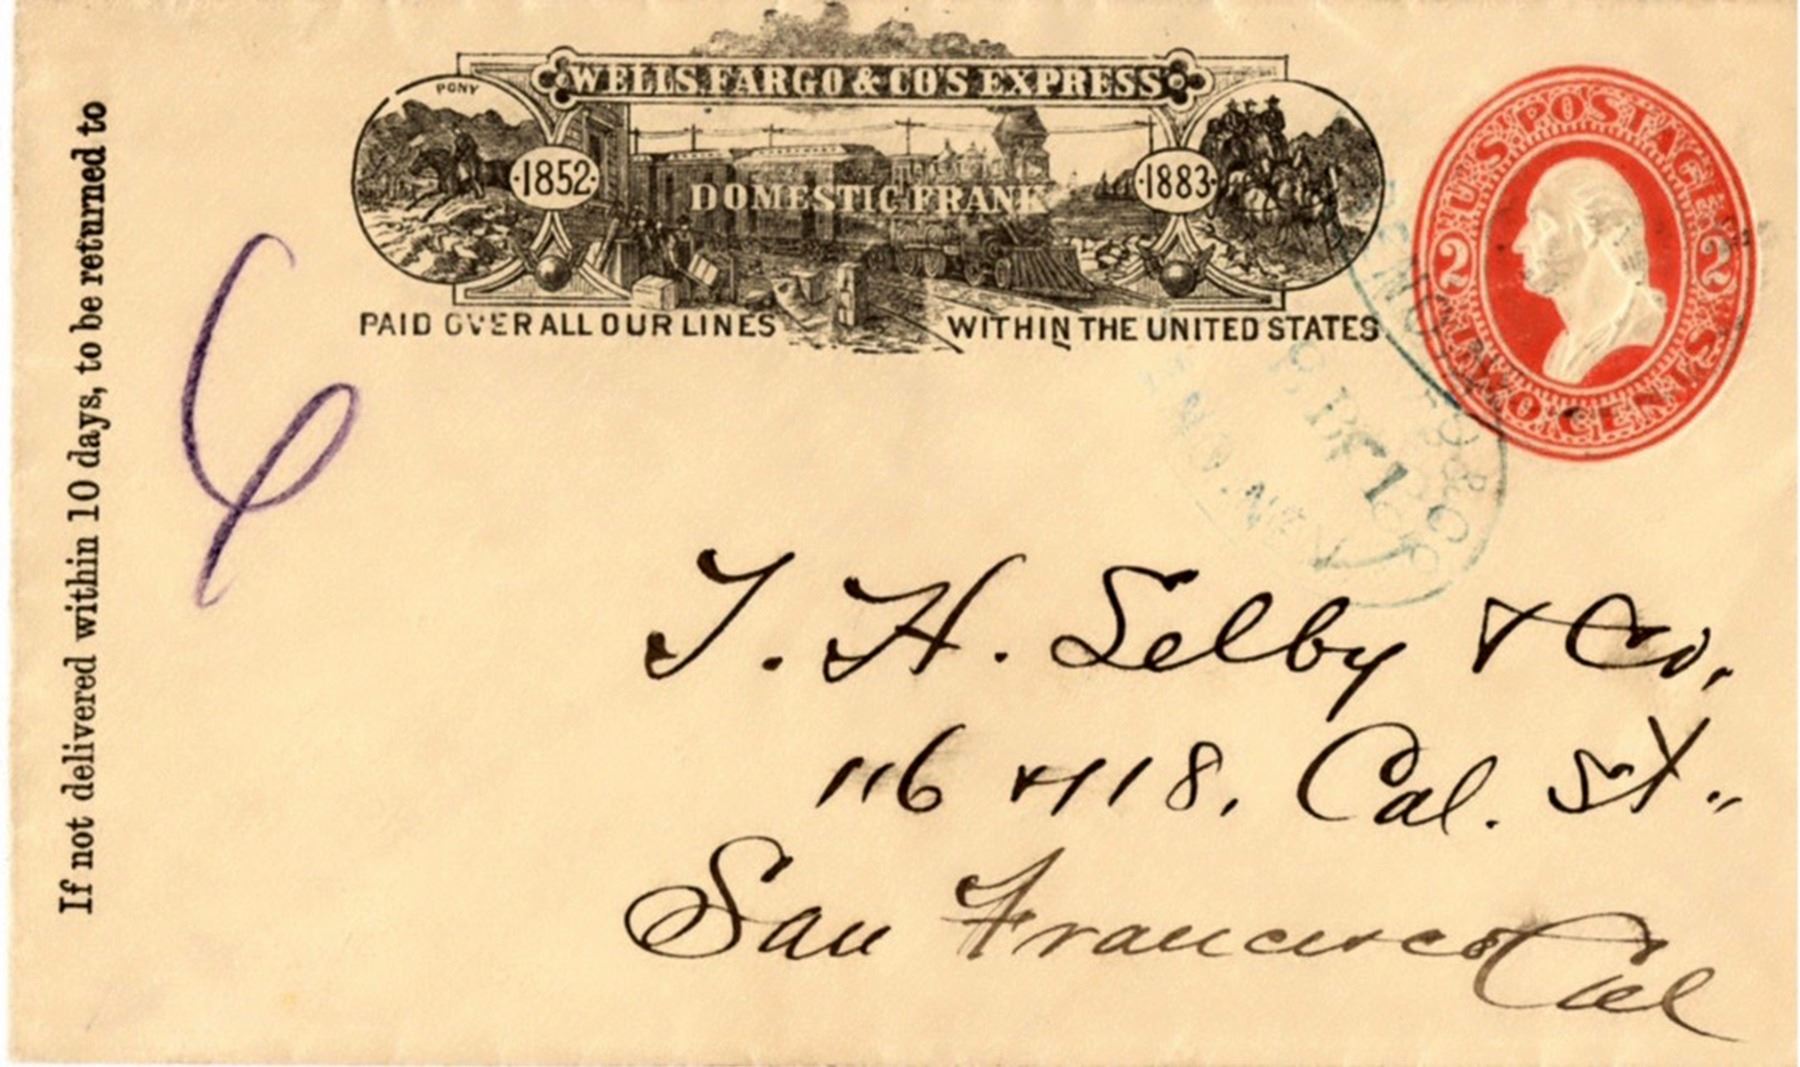 If not delivered within 10 days, to be returned to
WELLS, FARGO & CO'S EXPRESS
PONY
1852
DOMESTIC FRANK
1883
PAID OVER ALL OUR LINES WITHIN THE UNITED STATES
U.S. POSTAGE
2 2
TWO CENTS
6
T. H. Selby & Co,
116 & 118, Cal. St.,
San Francisco Cal